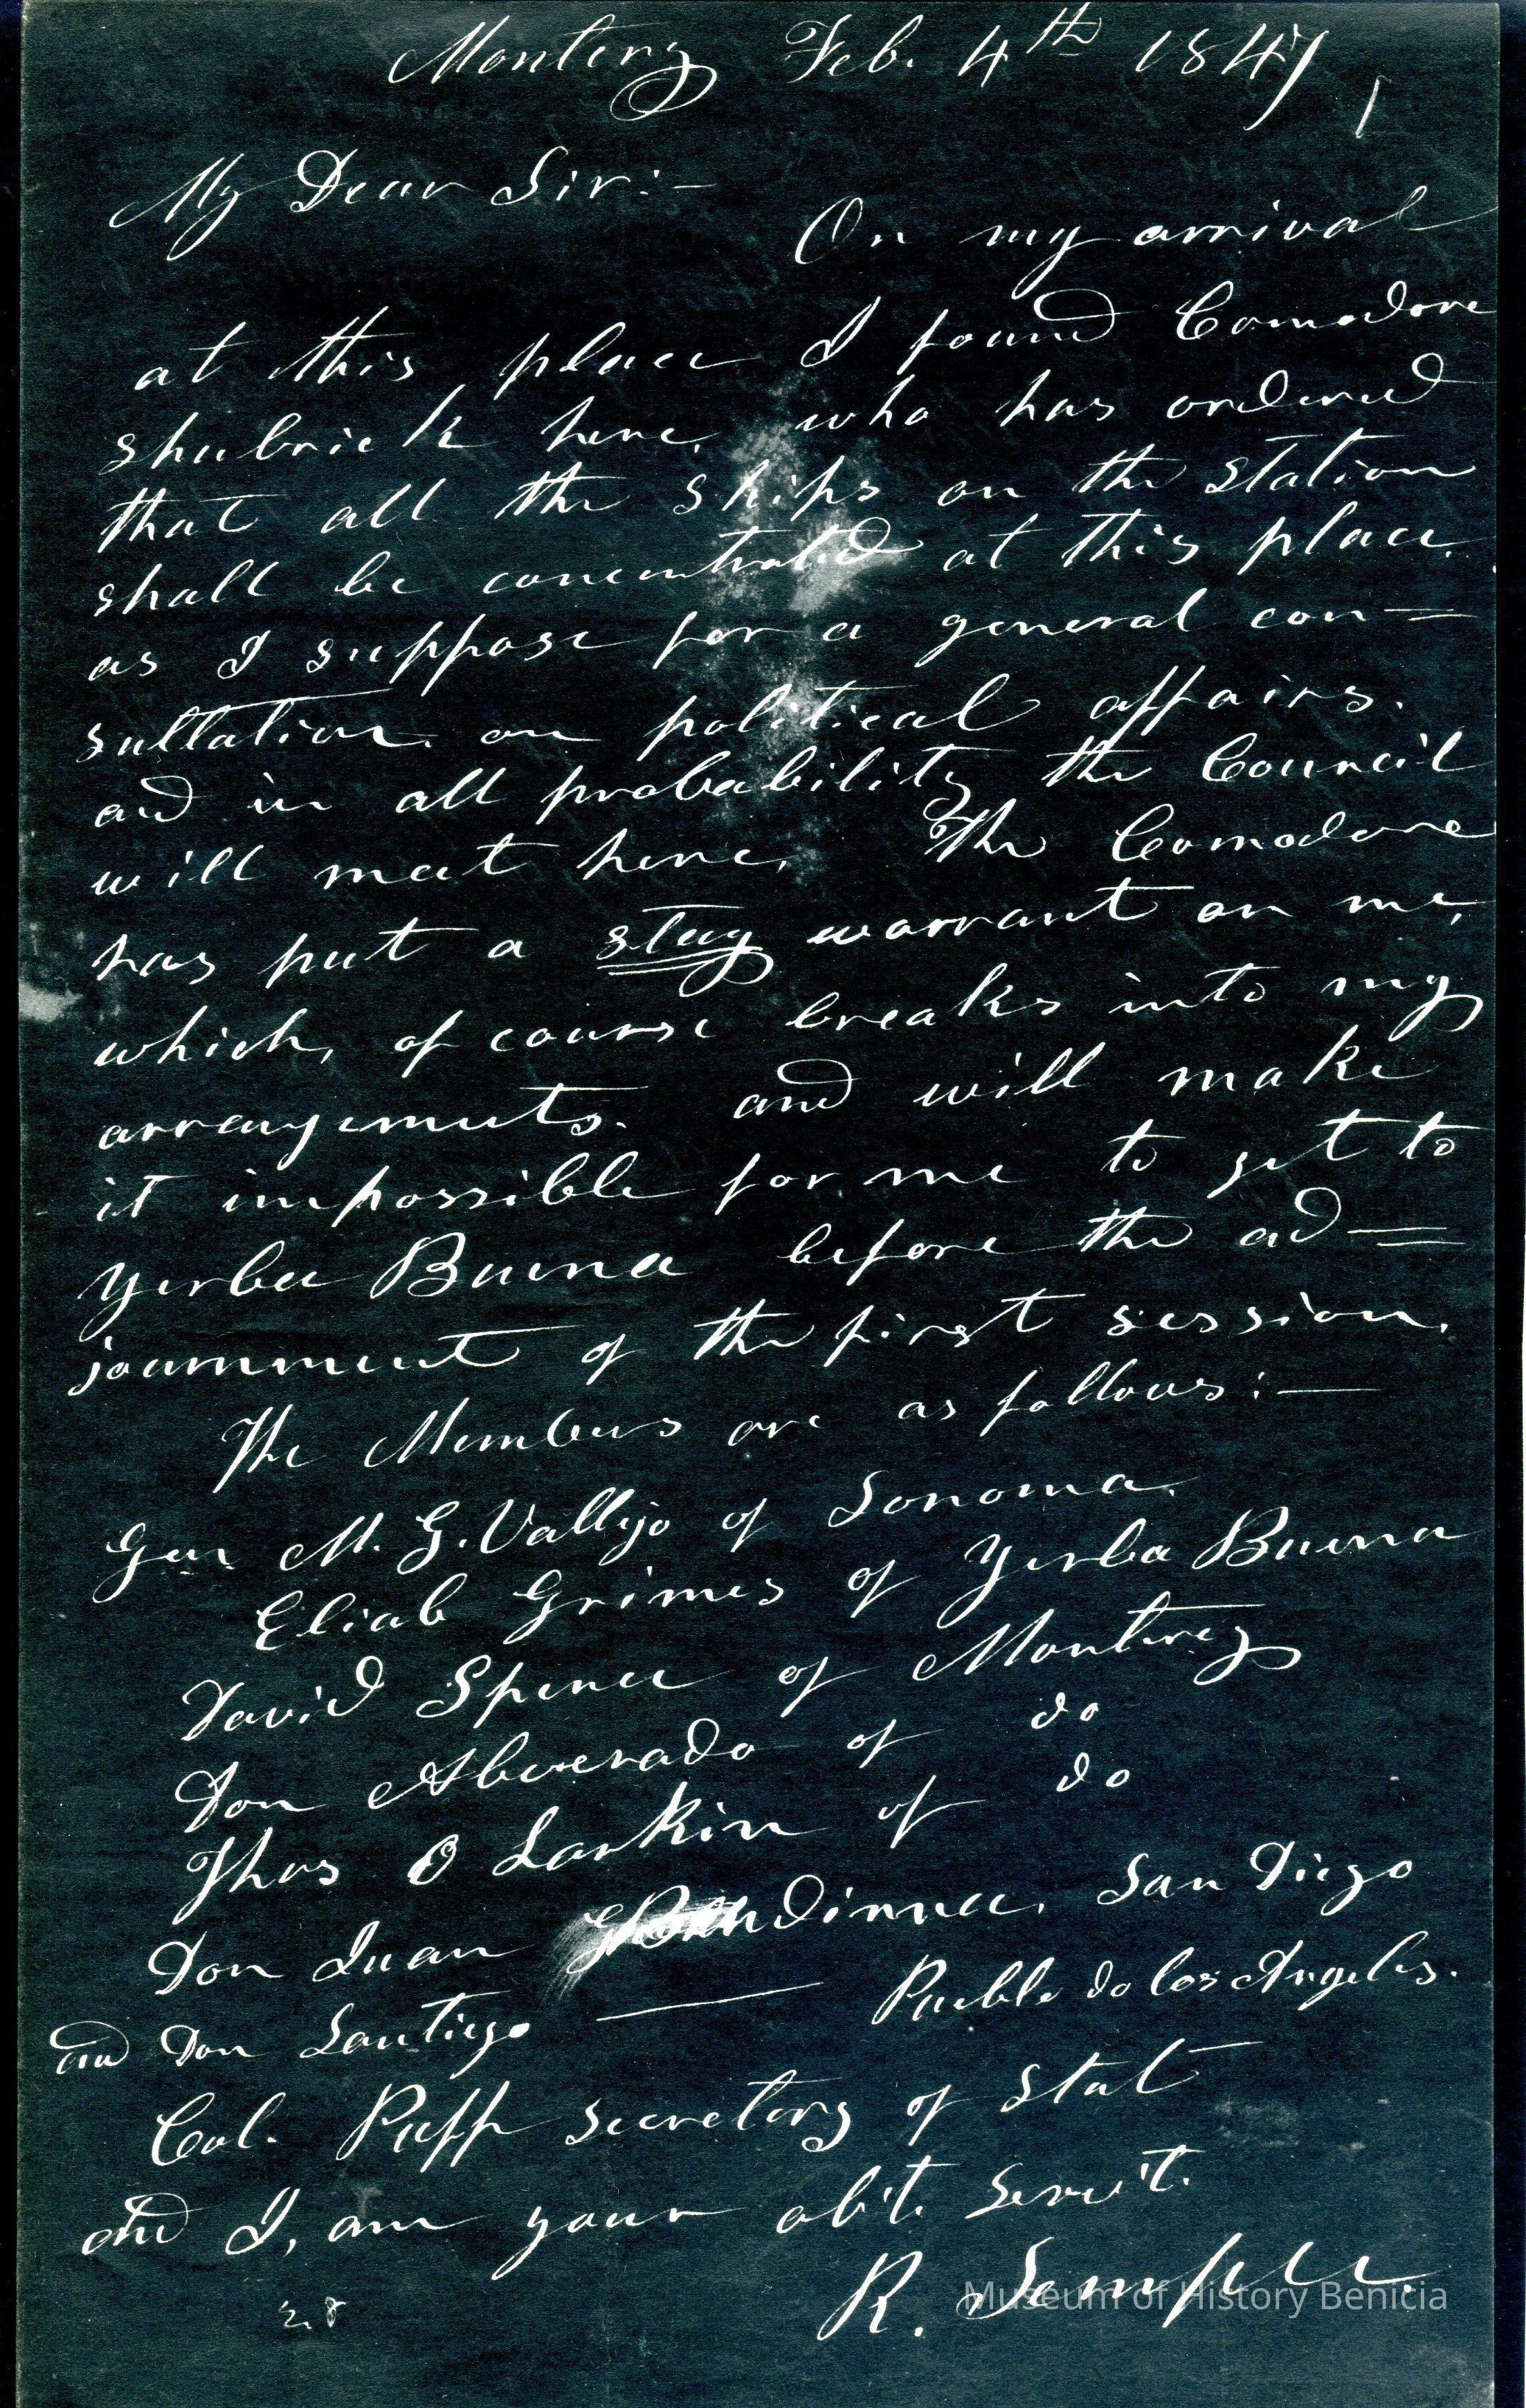 Monterey Feb. 4th 1847
My Dear Sir:—
On my arrival
at this place I found Comodore
Shubrick here, who has ordered
that all the ships on the station
shall be concentrated at this place.
as I suppose for a general con=
sultation on political affairs.
and in all probability the Council
will meet here, The Comodore
has put a stay warrant on me,
which, of course breaks into my
arrangements. and will make
it impossible for me to get to
Yerba Buena before the ad=
journment of the first session.
The Members are as follows:—
Gen M. G. Vallijo of Sonoma.
Eliab Grimes of Yerba Buena
David Spence of Monterey
Don Alverado of do
Thos O Larkin of do
Don Juan San Diego
and Don Santiego — Pueblo do los Angeles.
Col. Puff secretory of Stat
and I, am your ob't. Serv't.
R. Semple.
28
Museum of History Benicia